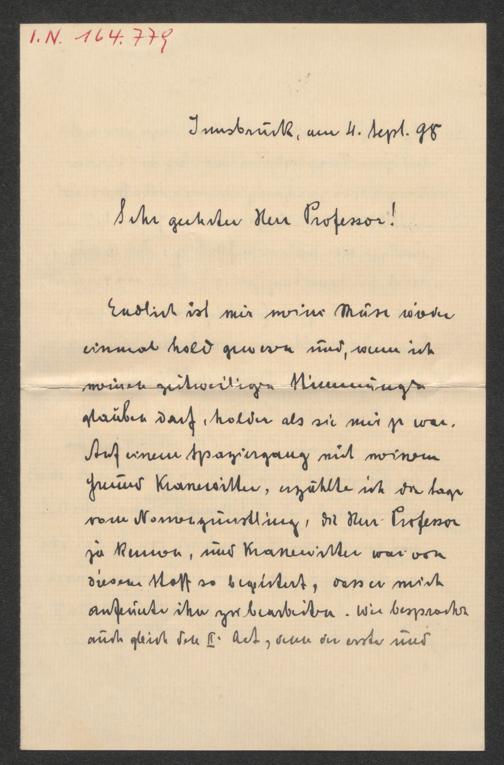 I.N. 164.779
Innsbruck, am 4. Sept. 98
Sehr geehrter Herr Professor!
Endlich ist mir meine Muse wieder
einmal hold gewesen und, wenn ich
meinen zeitweiligen Stimmungen
glauben darf, holder als sie mir je war.
Auf einem Spaziergang mit meinem
Freund Kranewitter, erzählte ich die Sage
vom, die Herr Professor
ja kennen, und Kranewitter war von
diesem Stoff so begeistert, dass er mich
anfeuerte ihn zu bearbeiten. Wir besprachen
auch gleich den II. Act, denn der erste und